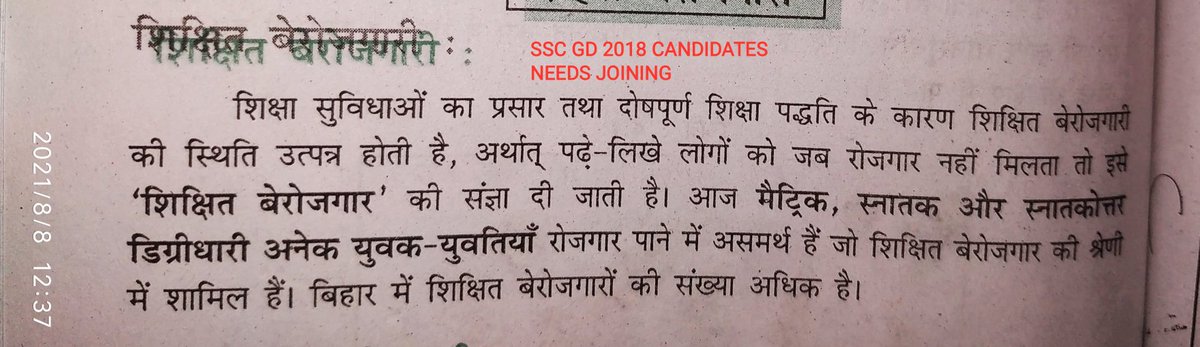 शिक्षित बेरोजगारी :
SSC GD 2018 CANDIDATES
NEEDS JOINING
शिक्षा सुविधाओं का प्रसार तथा दोषपूर्ण शिक्षा पद्धति के कारण शिक्षित बेरोजगारी
की स्थिति उत्पन्न होती है, अर्थात् पढ़े-लिखे लोगों को जब रोजगार नहीं मिलता तो इसे
‘शिक्षित बेरोजगार’ की संज्ञा दी जाती है। आज मैट्रिक, स्नातक और स्नातकोत्तर
डिग्रीधारी अनेक युवक-युवतियाँ रोजगार पाने में असमर्थ हैं जो शिक्षित बेरोजगार की श्रेणी
में शामिल हैं। बिहार में शिक्षित बेरोजगारों की संख्या अधिक है।
2021/8/8 12:37